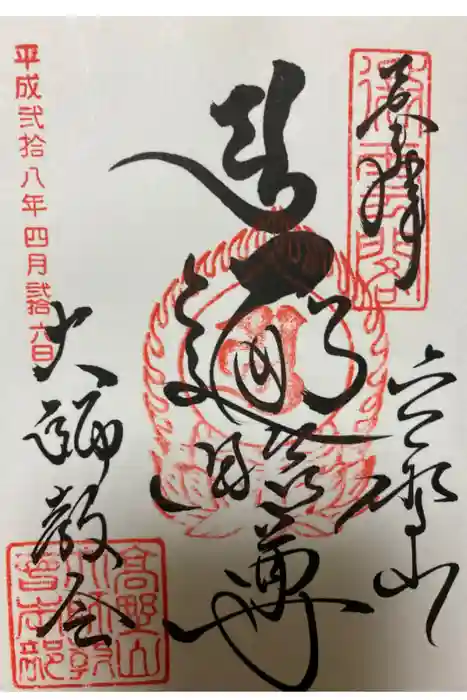 奉拝
高野山
遍照尊
大師教会
高野山
大師教
会本部
平成弐拾八年四月弐拾六日